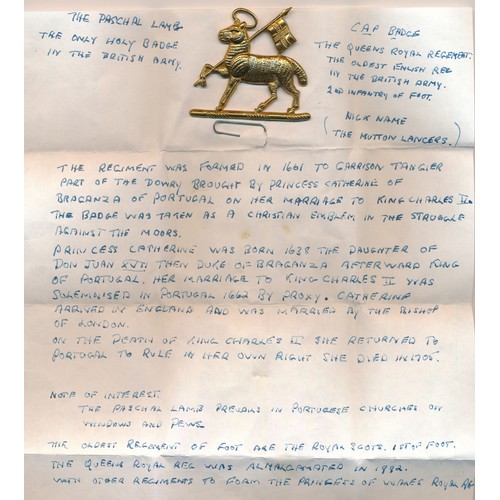 THE PASCHAL LAMB
THE ONLY HOLY BADGE
IN THE BRITISH ARMY.
CAP BADGE
THE QUEENS ROYAL REGEMENT.
THE OLDEST ENLISH REG
IN THE BRITISH ARMY.
2ND INFANTRY OF FOOT.
NICK NAME
(THE MUTTON LANCERS.)
THE REGIMENT WAS FORMED IN 1661 TO GARRISON TANGIER
PART OF THE DOWRY BROUGHT BY PRINCESS CATHERINE OF
BRAGANZA OF PORTUGAL ON HER MARRIAGE TO KING CHARLES II.
THE BADGE WAS TAKEN AS A CHRISTIAN EMBLEM IN THE STRUGGLE
AGAINST THE MOORS.
PRINCESS CATHERINE WAS BORN 1638 THE DAUGHTER OF
DON JUAN THEN DUKE OF BRAGANZA AFTERWARD KING
OF PORTUGAL. HER MARRIAGE TO KING CHARLES II WAS
SOLEMNISED IN PORTUGAL 1662 BY PROXY. CATHERINE
ARRIVED IN ENGLAND AND WAS MARRIED BY THE BISHOP
OF LONDON.
ON THE DEATH OF KING CHARLES II SHE RETURNED TO
PORTUGAL TO RULE IN HER OWN RIGHT SHE DIED IN 1705.
NOTE OF INTEREST.
THE PASCHAL LAMB PREVAILS IN PORTUGESE CHURCHES ON
WINDOWS AND PEWS.
THE OLDEST REGEMENT OF FOOT ARE THE ROYAL SCOTS. 1ST OF FOOT.
THE QUEENS ROYAL REG WAS ALMALGAMATED IN 1992.
WITH OTHER REGIMENTS TO FORM THE PRINCESS OF WALES ROYAL